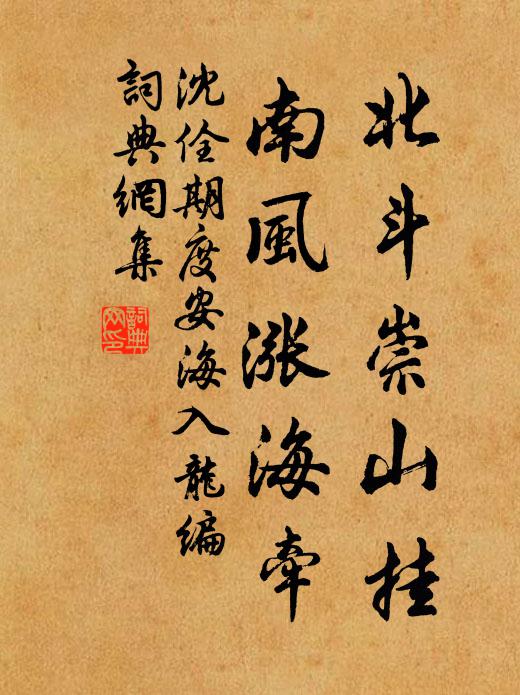 北斗崇山挂
南風漲海牽
沈佺期度安海入龍編
詞典網集
詞典網印